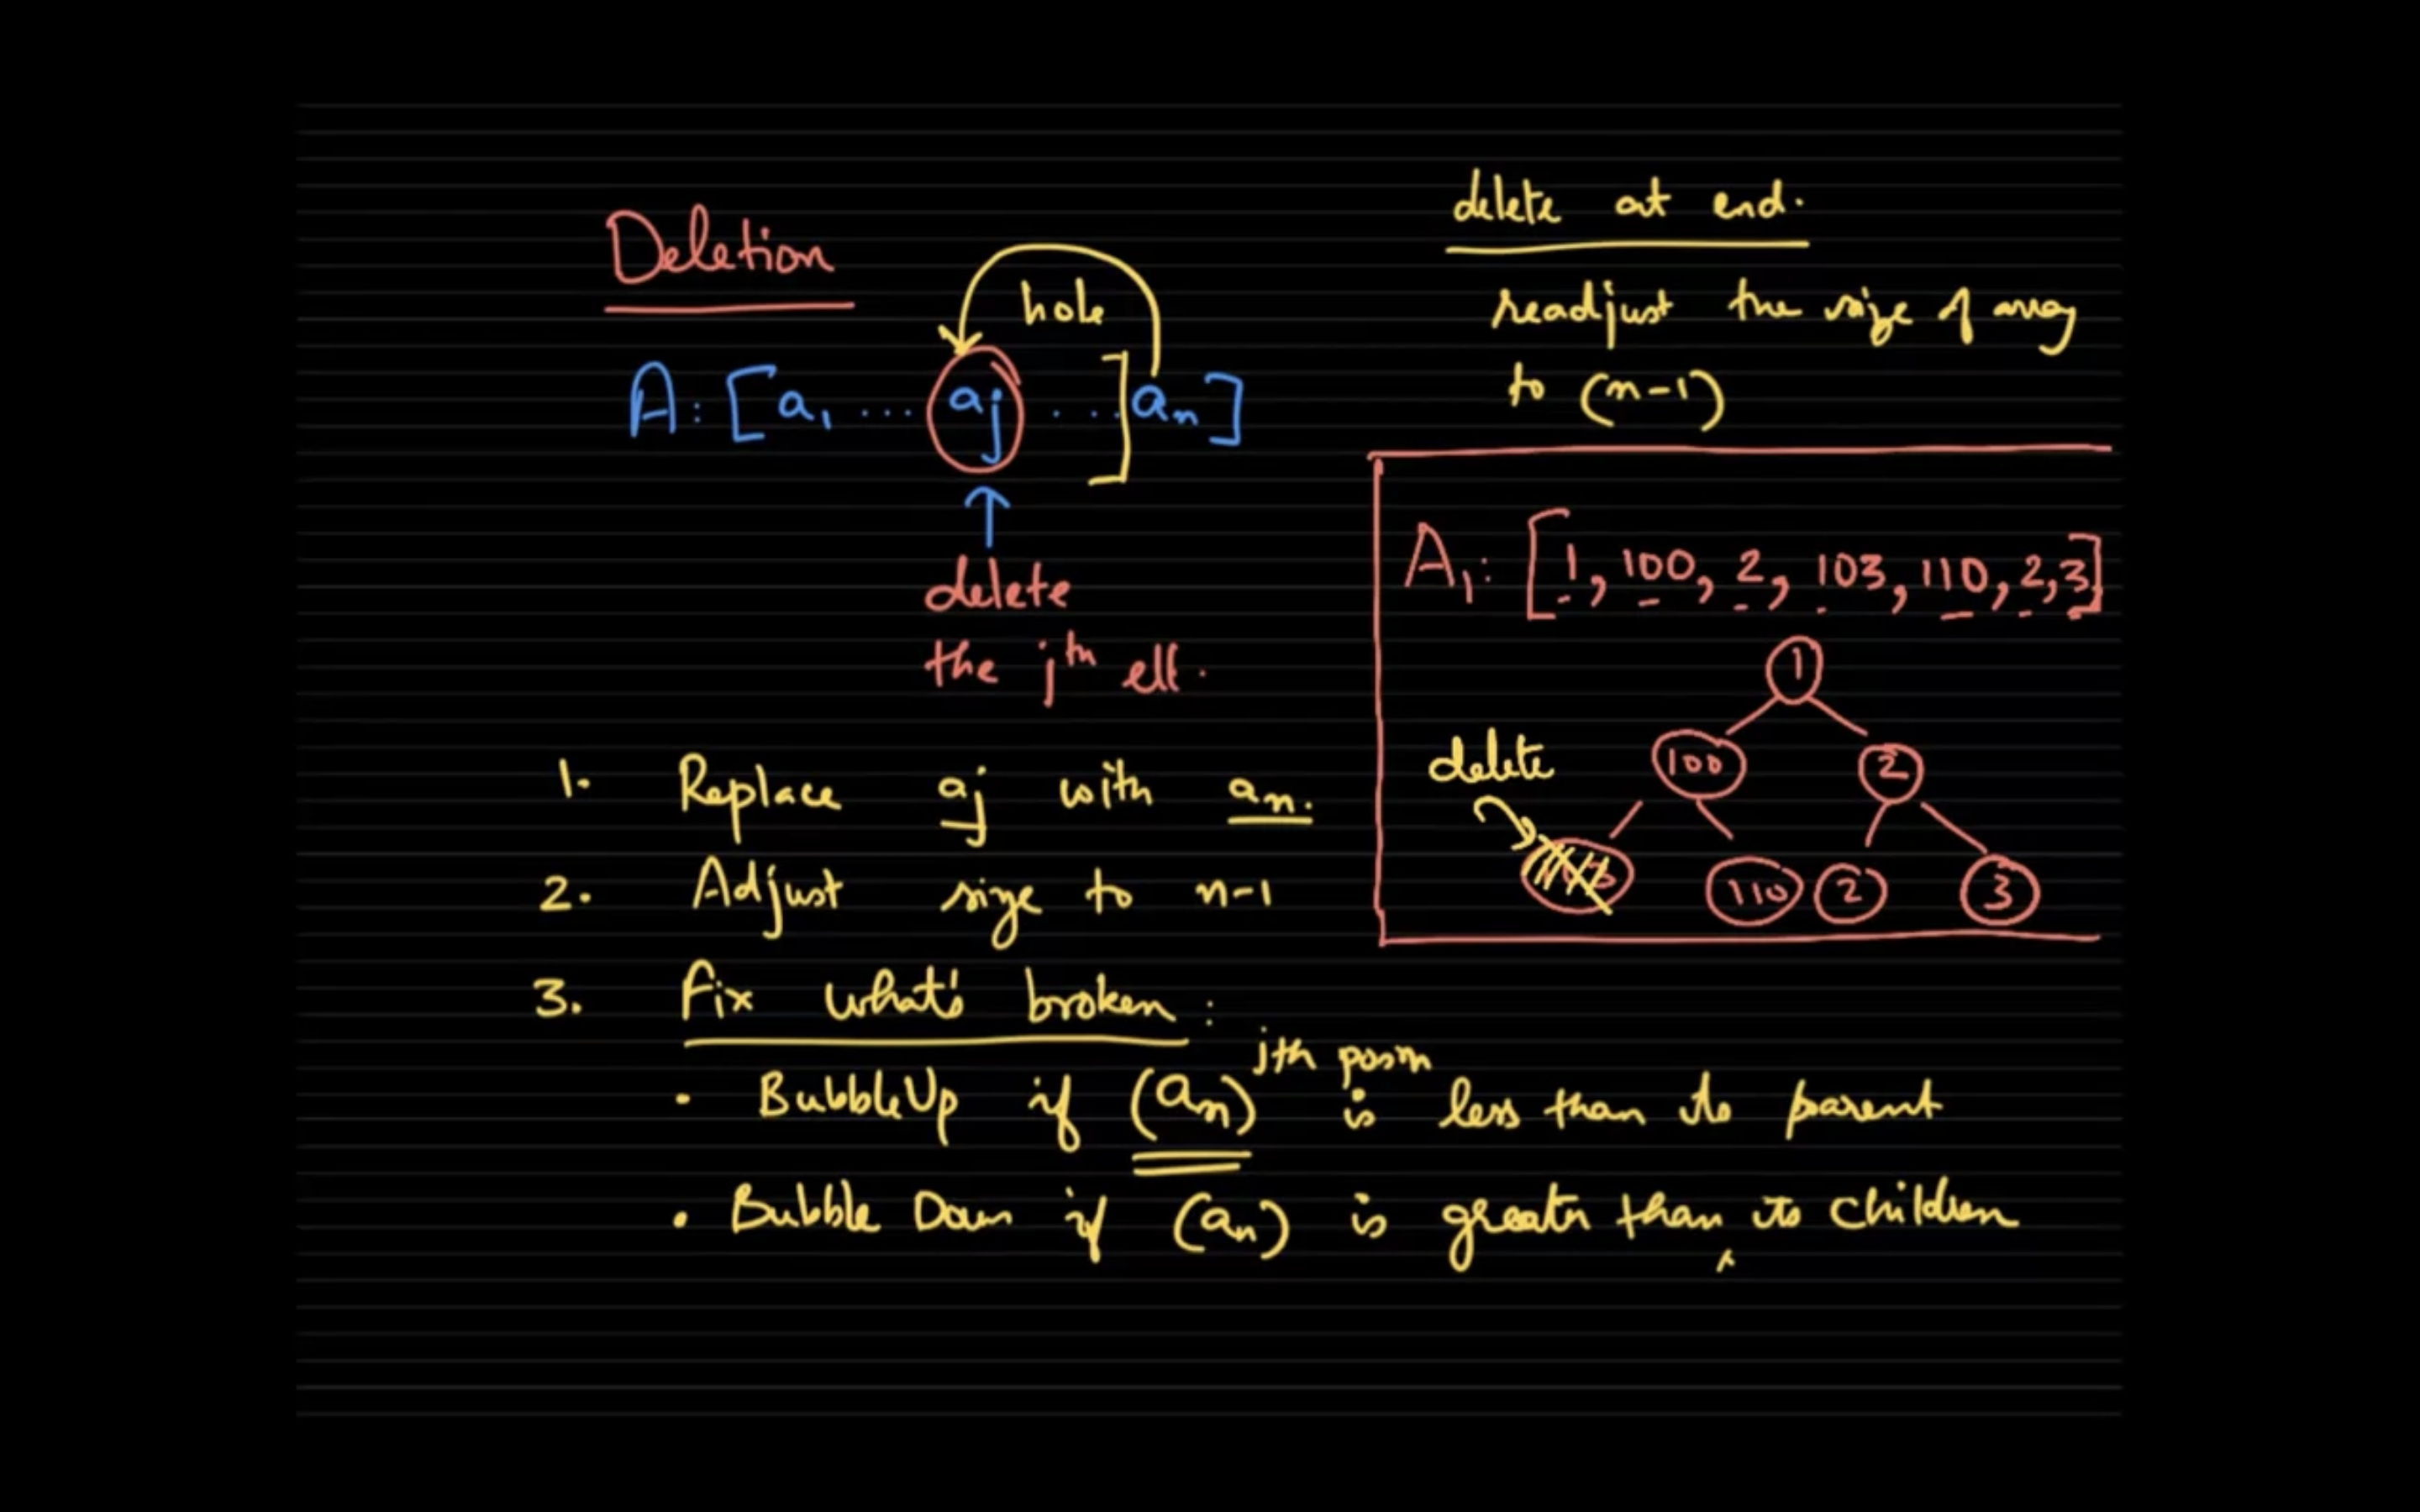 Deletion
hole
A: [ a1 ... aj ... ] an ]
delete
the jth ell.
delete at end.
readjust the size of array
to (n-1)
A1: [1, 100, 2, 103, 110, 2, 3]
1
100 2
delete
110 2 3
1. Replace aj with an.
2. Adjust size to n-1
3. Fix what's broken:
jth posn
• BubbleUp if (an) is less than its parent
• Bubble Down if (an) is greater than its children